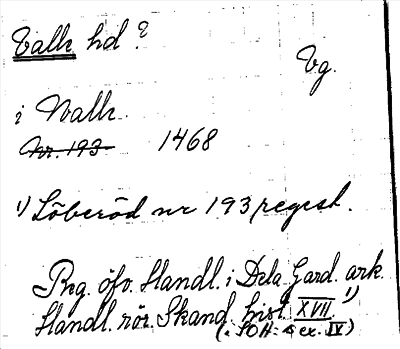 Valle hd ?
Vg.
i Valle
Nr. 193 1468
1) Löberöd nr 193, regest.
Reg. öfv. Handl. i Dela Gard. ark. 1)
Handl. rör. Skand. hist. XVII
(. SOH: s ex. IV)